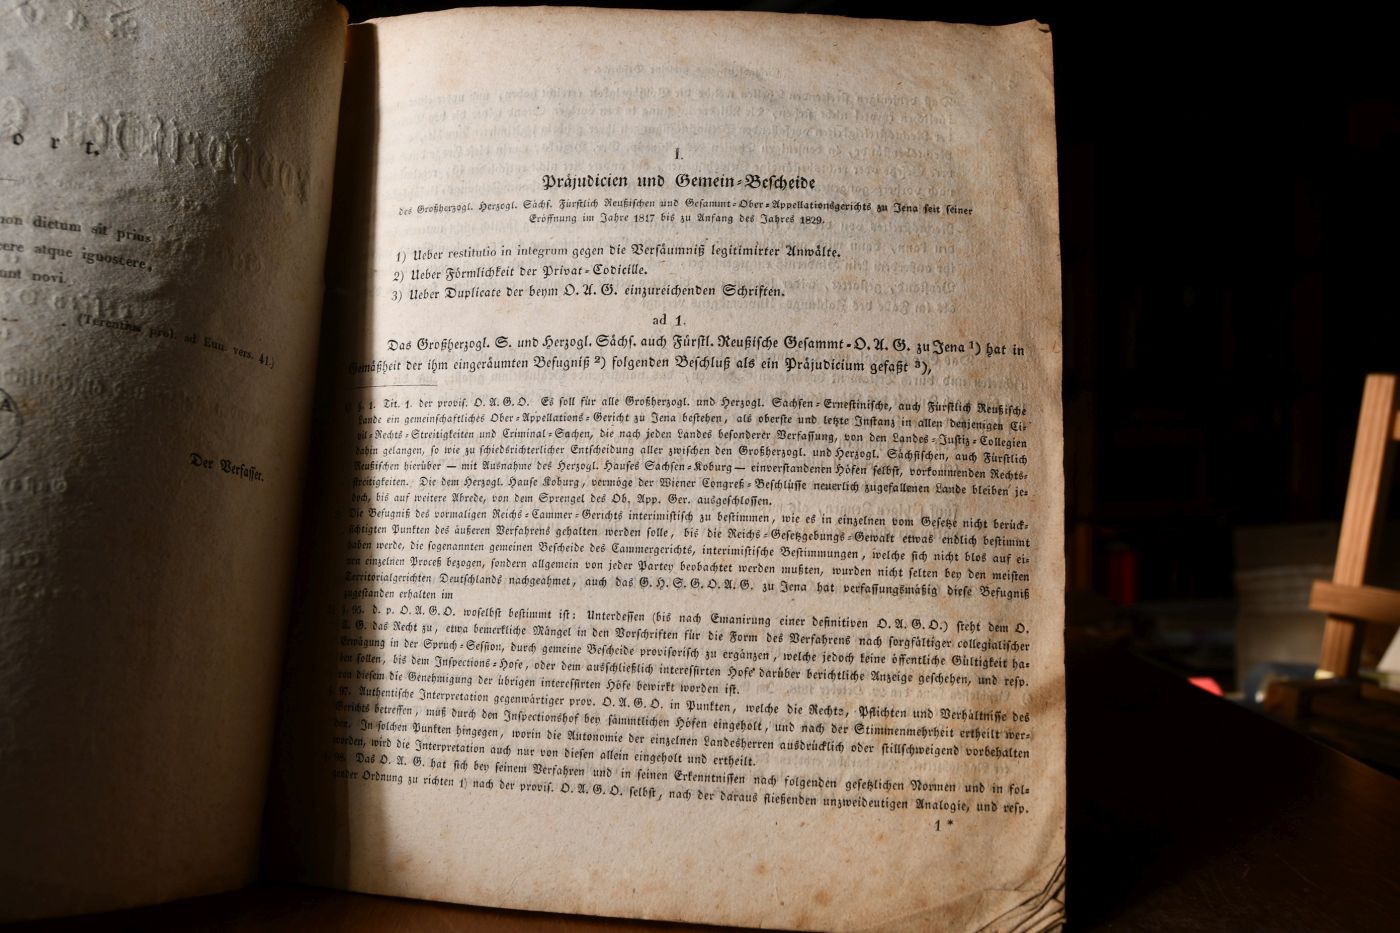 o r t.
non dictum sit prius
cere atque ignoscere,
unt novi.
(Terentius prol. ad Eun. vers. 41.)
Der Verfasser.
I.
Präjudicien und Gemein-Bescheide
des Großherzogl. Herzogl. Sächs. Fürstlich Reußischen und Gesammt-Ober-Appellationsgerichts zu Jena seit seiner
Eröffnung im Jahre 1817 bis zu Anfang des Jahres 1829.
1) Ueber restitutio in integrum gegen die Versäumniß legitimirter Anwälte.
2) Ueber Förmlichkeit der Privat-Codicille.
3) Ueber Duplicate der beym O. A. G. einzureichenden Schriften.
ad 1.
Das Großherzogl. S. und Herzogl. Sächs. auch Fürstl. Reußische Gesammt-O. A. G. zu Jena ¹) hat in
Gemäßheit der ihm eingeräumten Befugniß ²) folgenden Beschluß als ein Präjudicium gefaßt ³),
§. 1. Tit. 1. der provis. O. A. G. O. Es soll für alle Großherzogl. und Herzogl. Sachsen-Ernestinische, auch Fürstlich Reußische
Lande ein gemeinschaftliches Ober-Appellations-Gericht zu Jena bestehen, als oberste und letzte Instanz in allen denjenigen Ci-
vil-Rechts-Streitigkeiten und Criminal-Sachen, die nach jeden Landes besonderer Verfassung, von den Landes-Justiz-Collegien
dahin gelangen, so wie zu schiedsrichterlicher Entscheidung aller zwischen den Großherzogl. und Herzogl. Sächsischen, auch Fürstlich
Reußischen hierüber — mit Ausnahme des Herzogl. Hauses Sachsen-Koburg — einverstandenen Höfen selbst, vorkommenden Rechts-
streitigkeiten. Die dem Herzogl. Hause Koburg, vermöge der Wiener Congreß-Beschlüsse neuerlich zugefallenen Lande bleiben je-
doch, bis auf weitere Abrede, von dem Sprengel des Ob. App. Ger. ausgeschlossen.
Die Befugniß des vormaligen Reichs-Cammer-Gerichts interimistisch zu bestimmen, wie es in einzelnen vom Gesetze nicht berück-
sichtigten Punkten des äußeren Verfahrens gehalten werden solle, bis die Reichs-Gesetzgebungs-Gewalt etwas endlich bestimmt
haben werde, die sogenannten gemeinen Bescheide des Cammergerichts, interimistische Bestimmungen, welche sich nicht blos auf ei-
nen einzelnen Proceß bezogen, sondern allgemein von jeder Partey beobachtet werden mußten, wurden nicht selten bey den meisten
Territorialgerichten Deutschlands nachgeahmet, auch das G. H. S. G. O. A. G. zu Jena hat verfassungsmäßig diese Befugniß
zugestanden erhalten im
§. 95. d. p. O. A. G. O. woselbst bestimmt ist: Unterdessen (bis nach Emanirung einer definitiven O. A. G. O.) steht dem O.
A. G. das Recht zu, etwa bemerkliche Mängel in den Vorschriften für die Form des Verfahrens nach sorgfältiger collegialischer
Erwägung in der Spruch-Session, durch gemeine Bescheide provisorisch zu ergänzen, welche jedoch keine öffentliche Gültigkeit ha-
ben sollen, bis dem Inspections-Hofe, oder dem ausschließlich interessirten Hofe darüber berichtliche Anzeige geschehen, und resp.
von diesem die Genehmigung der übrigen interessirten Höfe bewirkt worden ist.
§. 97. Authentische Interpretation gegenwärtiger prov. O. A. G. O. in Punkten, welche die Rechte, Pflichten und Verhältnisse des
Gerichts betreffen, muß durch den Inspectionshof bey sämmtlichen Höfen eingeholt, und nach der Stimmenmehrheit ertheilt wer-
den. In solchen Punkten hingegen, worin die Autonomie der einzelnen Landesherren ausdrücklich oder stillschweigend vorbehalten
worden, wird die Interpretation auch nur von diesen allein eingeholt und ertheilt.
§. 98. Das O. A. G. hat sich bey seinem Verfahren und in seinen Erkenntnissen nach folgenden gesetzlichen Normen und in fol-
gender Ordnung zu richten 1) nach der provis. O. A. G. O. selbst, nach der daraus fließenden unzweideutigen Analogie, und resp.
1 *